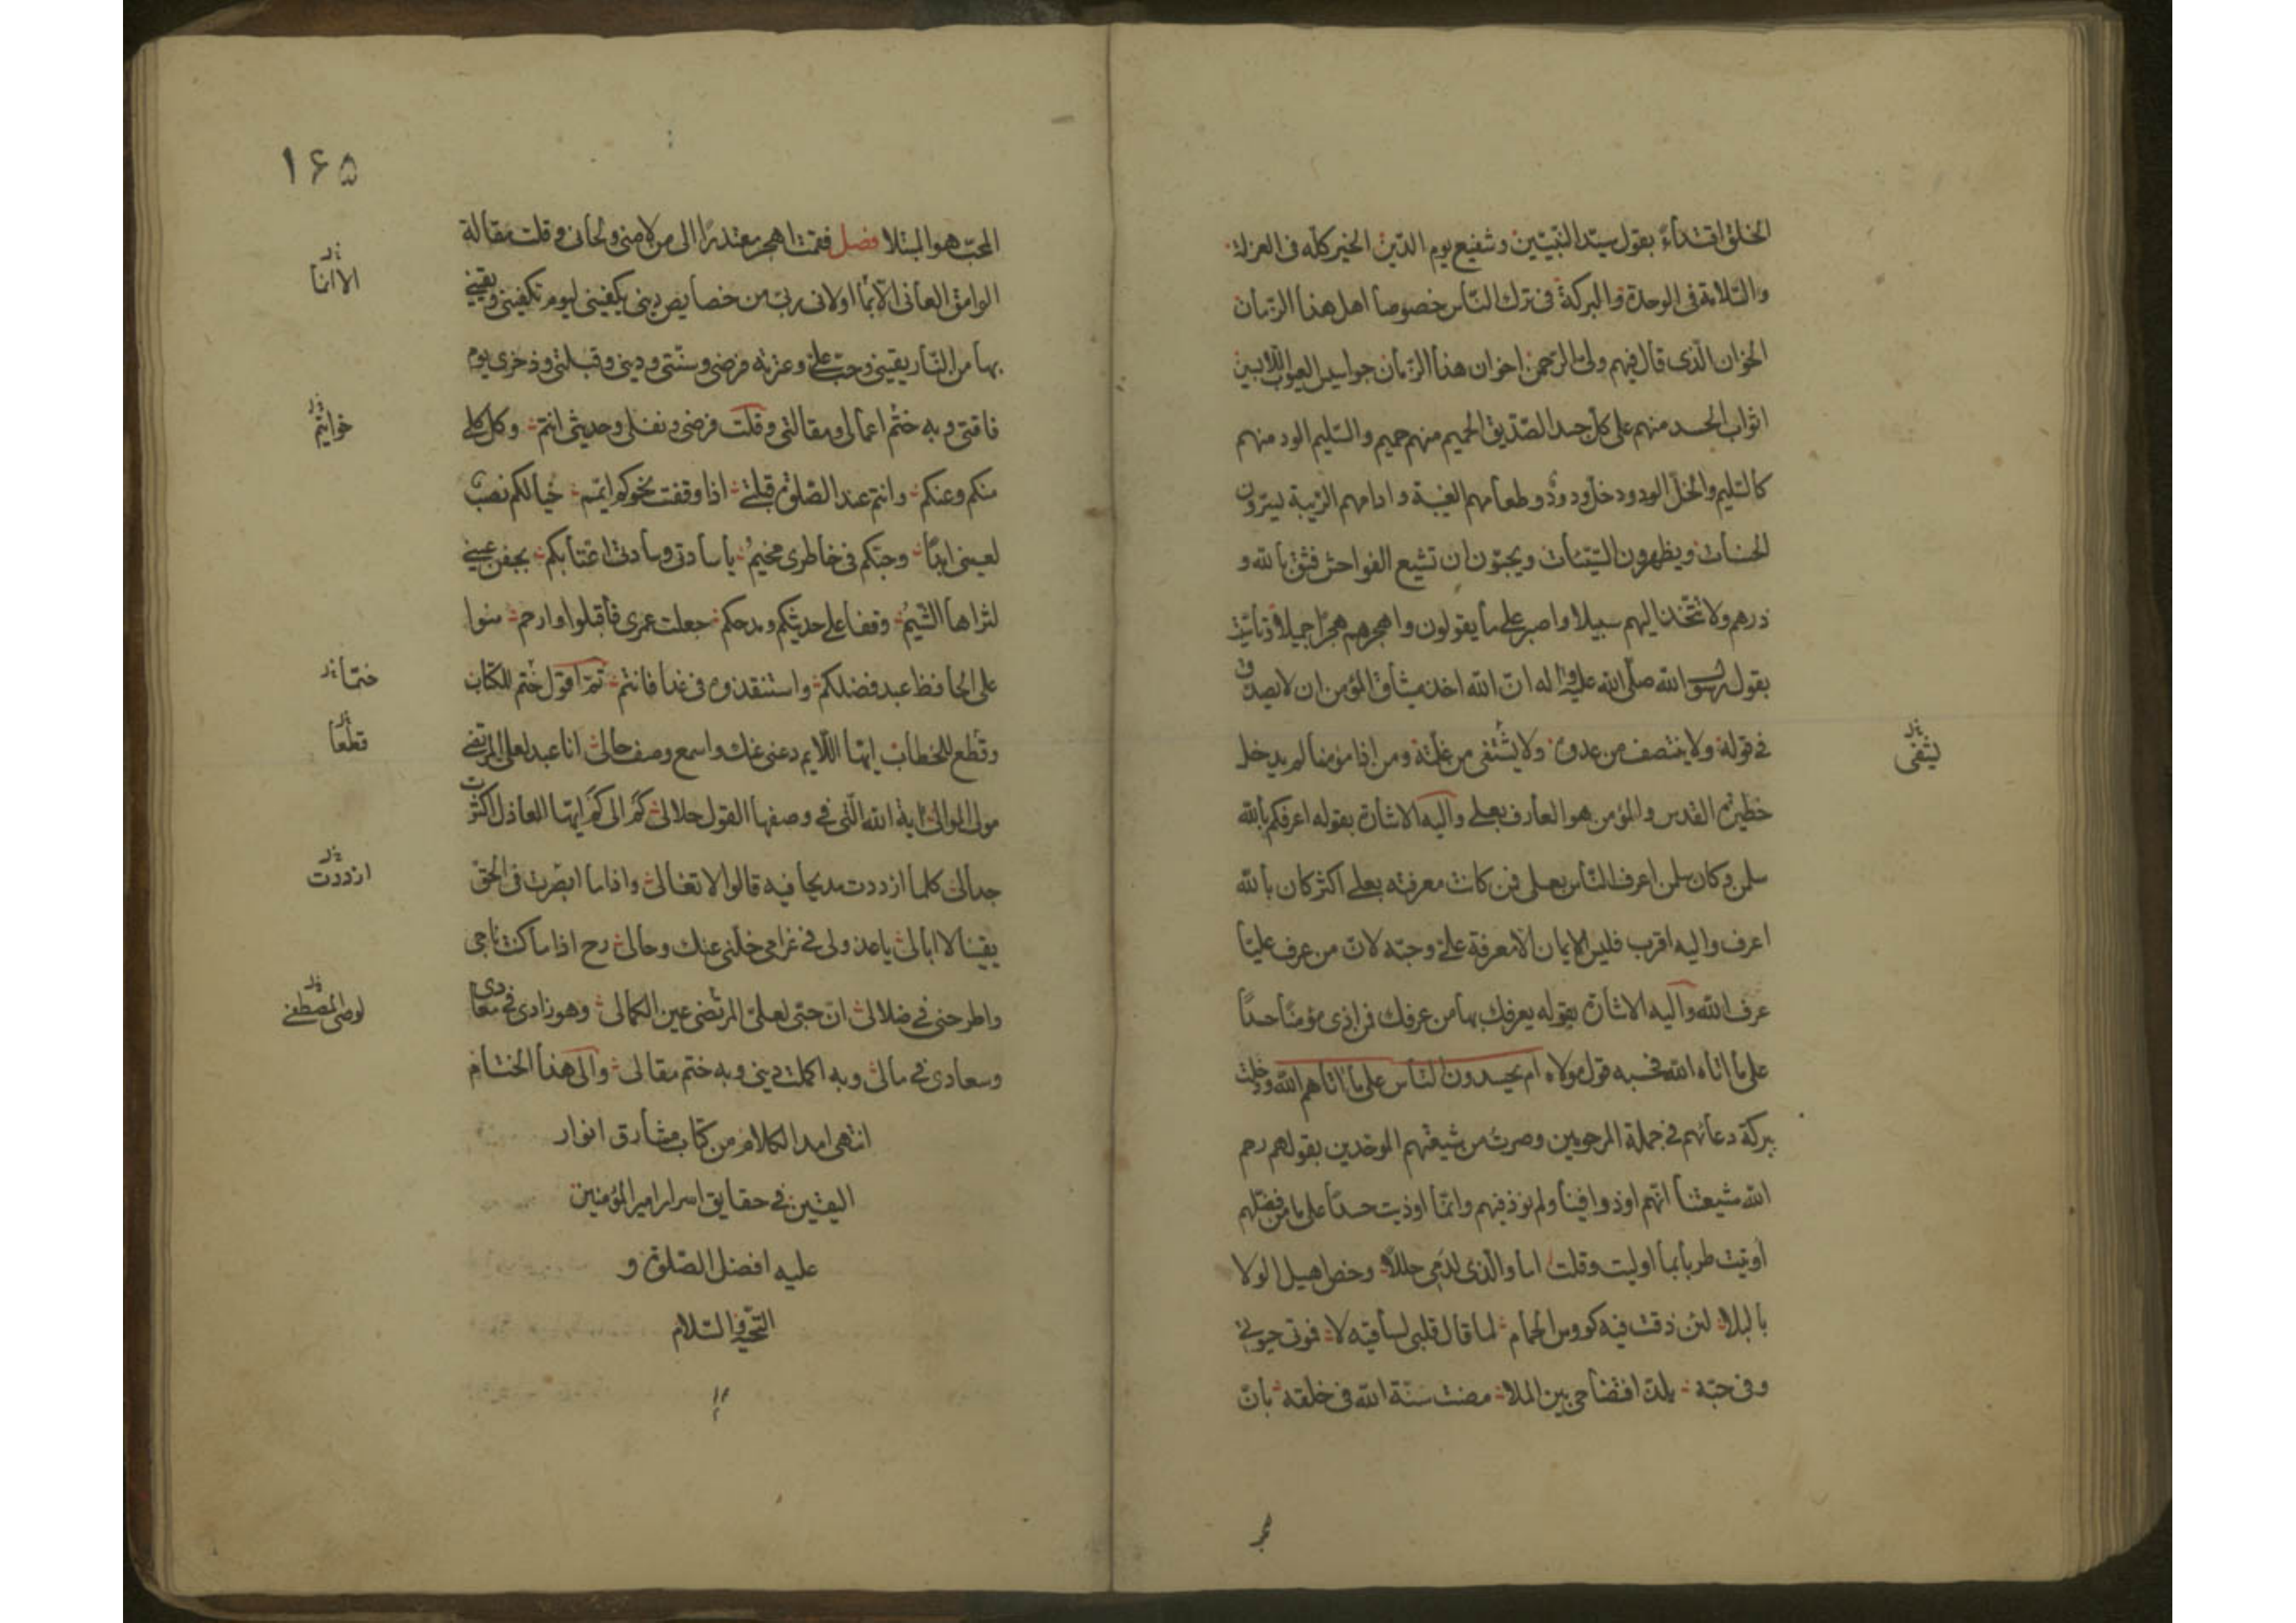 الخلق اقتداءً بقول سيّد النّبيّين وشفيع يوم الدّين الخير كلّه فى العزلة
والسّلامة فى الوحدة والبركة فى ترك النّاس خصوصا اهل هذا الزّمان
الخوّان الّذى قال فيهم ولىّ الرّحمن اخوان هذا الزّمان جواسيس العيوب اللّابسين
اثواب الحسد منهم على كلّ جسد الصّديق الحميم منهم حميم والسّليم الود منهم
كالسّليم والخلّ الودود خلّ ودود وطعامهم الغيبة وادامهم الرّيبة يسترون
الحسنات ويظهرون السّيّئات ويحبّون ان تشيع الفواحش فثق بالله و
ذرهم ولا تتّخذ اليهم سبيلا واصبر على ما يقولون واهجرهم هجرًا جميلا وتأسّيت
بقول رسول الله صلّى الله عليه واله انّ الله اخذ ميثاق المؤمن ان لا يصدق
فى قوله ولا ينتصف من عدوه ولا يشتفى من غلّته ومن اذا مؤمنا لم يدخل
يشفى
حظيرة القدس والمؤمن هو العارف بعلى واليه الاشارة بقوله اعرفكم بالله
سلمن وكان سلمن اعرف النّاس بعلى فمن كانت معرفته بعلى اكثر كان بالله
اعرف واليه اقرب فليس الايمان الا معرفة على وحبّه لانّ من عرف عليّا
عرف الله واليه الاشارة بقوله يعرفك بها من عرفك فمن اذى مؤمنًا حسدًا
على ما اتاه الله فحسبه قول مولاه ام يحسدون النّاس على ما اتاهم الله ودخلت
ببركة دعائهم فى جملة المرحومين وصرت من شيعتهم الموحّدين بقولهم رحم
الله شيعتنا انّهم اوذوا فينا ولم نوذ فيهم وانّما اوذيت حسدًا على ما من فضلهم
اوتيت طربا بما اوليت وقلت اما والّذى لدمى حلّلا وخصّ اهيل الولا
بالبلا لئن ذقت فيه كووس الحمام لما قال قلبى لساقيه لا فموتى حيوتى
وفى حبّه يلذّ افتضاحى بين الملا مضت سنّة الله فى خلقه بانّ
۱۶۵
المحبّ هو المبتلا فصل فقمت اهجر معتذرًا الى من لامنى ولحانى وقلت مقالة
الوامق العانى الا بما اولانى ربّى من خصايص دينى يكفينى ليوم تكفينى ويقينى
الا انما
بها من النّار يقينى وحبّ على وعترته فرضى وسنّتى ودينى وقبلتى وذخرى يوم
فاقتى وبه ختم اعمالى ومقالتى وقلت فرضى ونفلى وحديثى انتم وكل كلى
خواتيم
منكم وعنكم وانتم عند الصّلوة قبلتى اذا وقفت نحوكم ايمّم خيالكم نصب
لعينى ابدًا وحبّكم فى خاطرى مخيّم يا سادتى وسادتى اعتابكم بجفن عينى
لثراها الثم وقفا على حديثكم ومدحكم جعلت عمرى فاقبلوا وارحموا منوا
على الحافظ عبد فضلكم واستنقذوه فى غدا فانتم ثمّ اقول ختم للكتاب
ختما
وقطع للخطاب ايّها اللّايم دعنى عنك واسمع وصف حالى انا عبد لعلى المرتضى
قطعا
مولى الموالى اية الله الّتى فى وصفها القول حلالى كم الى كم ايّها العاذل اكثرت
جدالى كلما ازددت مديحا فيه قالوا لا تغالى واذا ما ابصرت فى الحقّ
ازددت
يقينا لا ابالى يا عذولى فى غرامى خلّنى عنك وحالى رح اذا ما كنت ناجى
واطرحنى فى ضلالى انّ حبّى لعلىّ المرتضى عين الكمالى وهو زادى فى معادى
لوصى المصطفى
ومعادى فى مالى وبه اكملت دينى وبه ختم مقالى والى هذا الختام
انتهى امد الكلام من كتاب مشارق انوار
اليقين فى حقايق اسرار امير المؤمنين
عليه افضل الصّلوة و
التّحيّة والسّلام